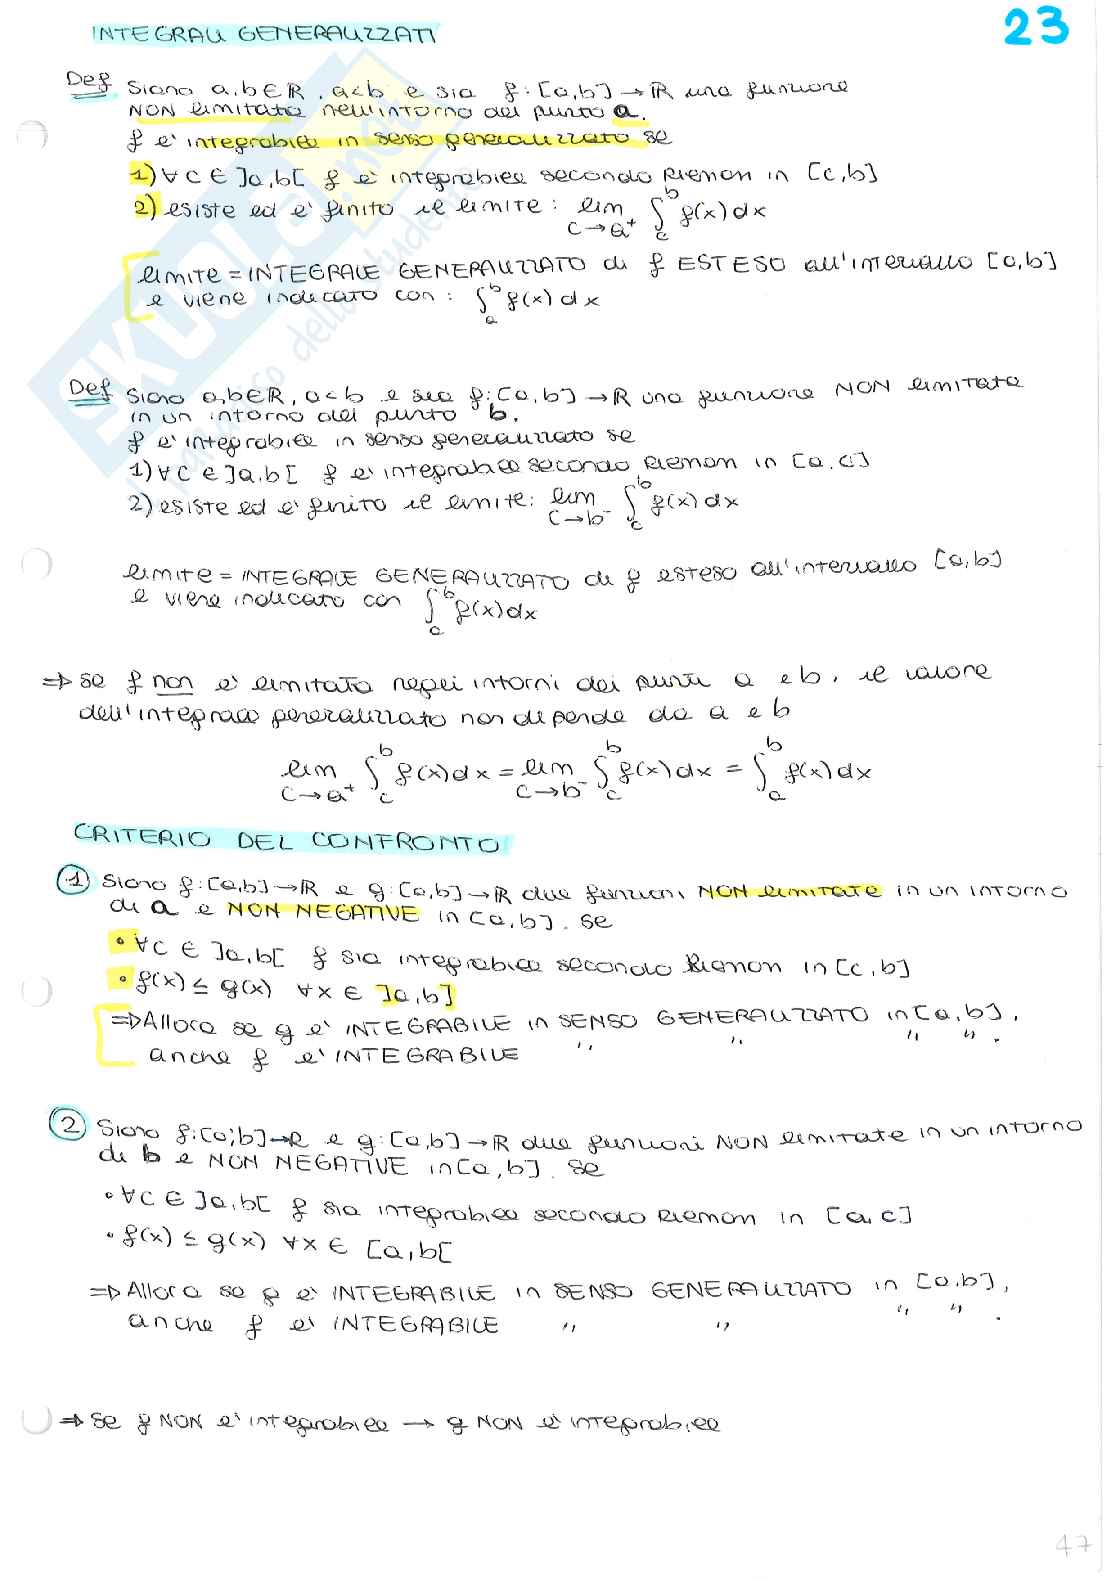 INTEGRALI GENERALIZZATI
23
Def Siano a,b∈R, a<b e sia f:[a,b]→R una funzione
NON limitata nell'intorno del punto a.
f e' integrabile in senso generalizzato se
1) ∀c∈]a,b[ f e' integrabile secondo Rieman in [c,b]
2) esiste ed e' finito il limite: lim c→a⁺ ∫_c^b f(x)dx
limite = INTEGRALE GENERALIZZATO di f ESTESO all'intervallo [a,b]
e viene indicato con: ∫_a^b f(x)dx
Def Siano a,b∈R, a<b e sia f:[a,b]→R una funzione NON limitata
in un intorno del punto b.
f e' integrabile in senso generalizzato se
1) ∀c∈]a,b[ f e' integrabile secondo Rieman in [a,c]
2) esiste ed e' finito il limite: lim c→b⁻ ∫_c^b f(x)dx
limite = INTEGRALE GENERALIZZATO di f esteso all'intervallo [a,b]
e viene indicato con ∫_a^b f(x)dx
⇒ se f non e' limitata negli intorni dei punti a e b, il valore
dell'integrale generalizzato non dipende da a e b
lim c→a⁺ ∫_c^b f(x)dx = lim c→b⁻ ∫_c^b f(x)dx = ∫_a^b f(x)dx
CRITERIO DEL CONFRONTO
1 Siano f:[a,b]→R e g:[a,b]→R due funzioni NON limitate in un intorno
di a e NON NEGATIVE in [a,b]. se
• ∀c∈]a,b[ f sia integrabile secondo Rieman in [c,b]
• f(x)≤g(x) ∀x∈]a,b]
⇒ Allora se g e' INTEGRABILE in SENSO GENERALIZZATO in [a,b],
anche f e' INTEGRABILE " " " ".
2 Siano f:[a,b]→R e g:[a,b]→R due funzioni NON limitate in un intorno
di b e NON NEGATIVE in [a,b]. se
• ∀c∈]a,b[ f sia integrabile secondo Rieman in [a,c]
• f(x)≤g(x) ∀x∈[a,b[
⇒ Allora se g e' INTEGRABILE in SENSO GENERALIZZATO in [a,b],
anche f e' INTEGRABILE " " " ".
⇒ se f NON e' integrabile → g NON e' integrabile
47